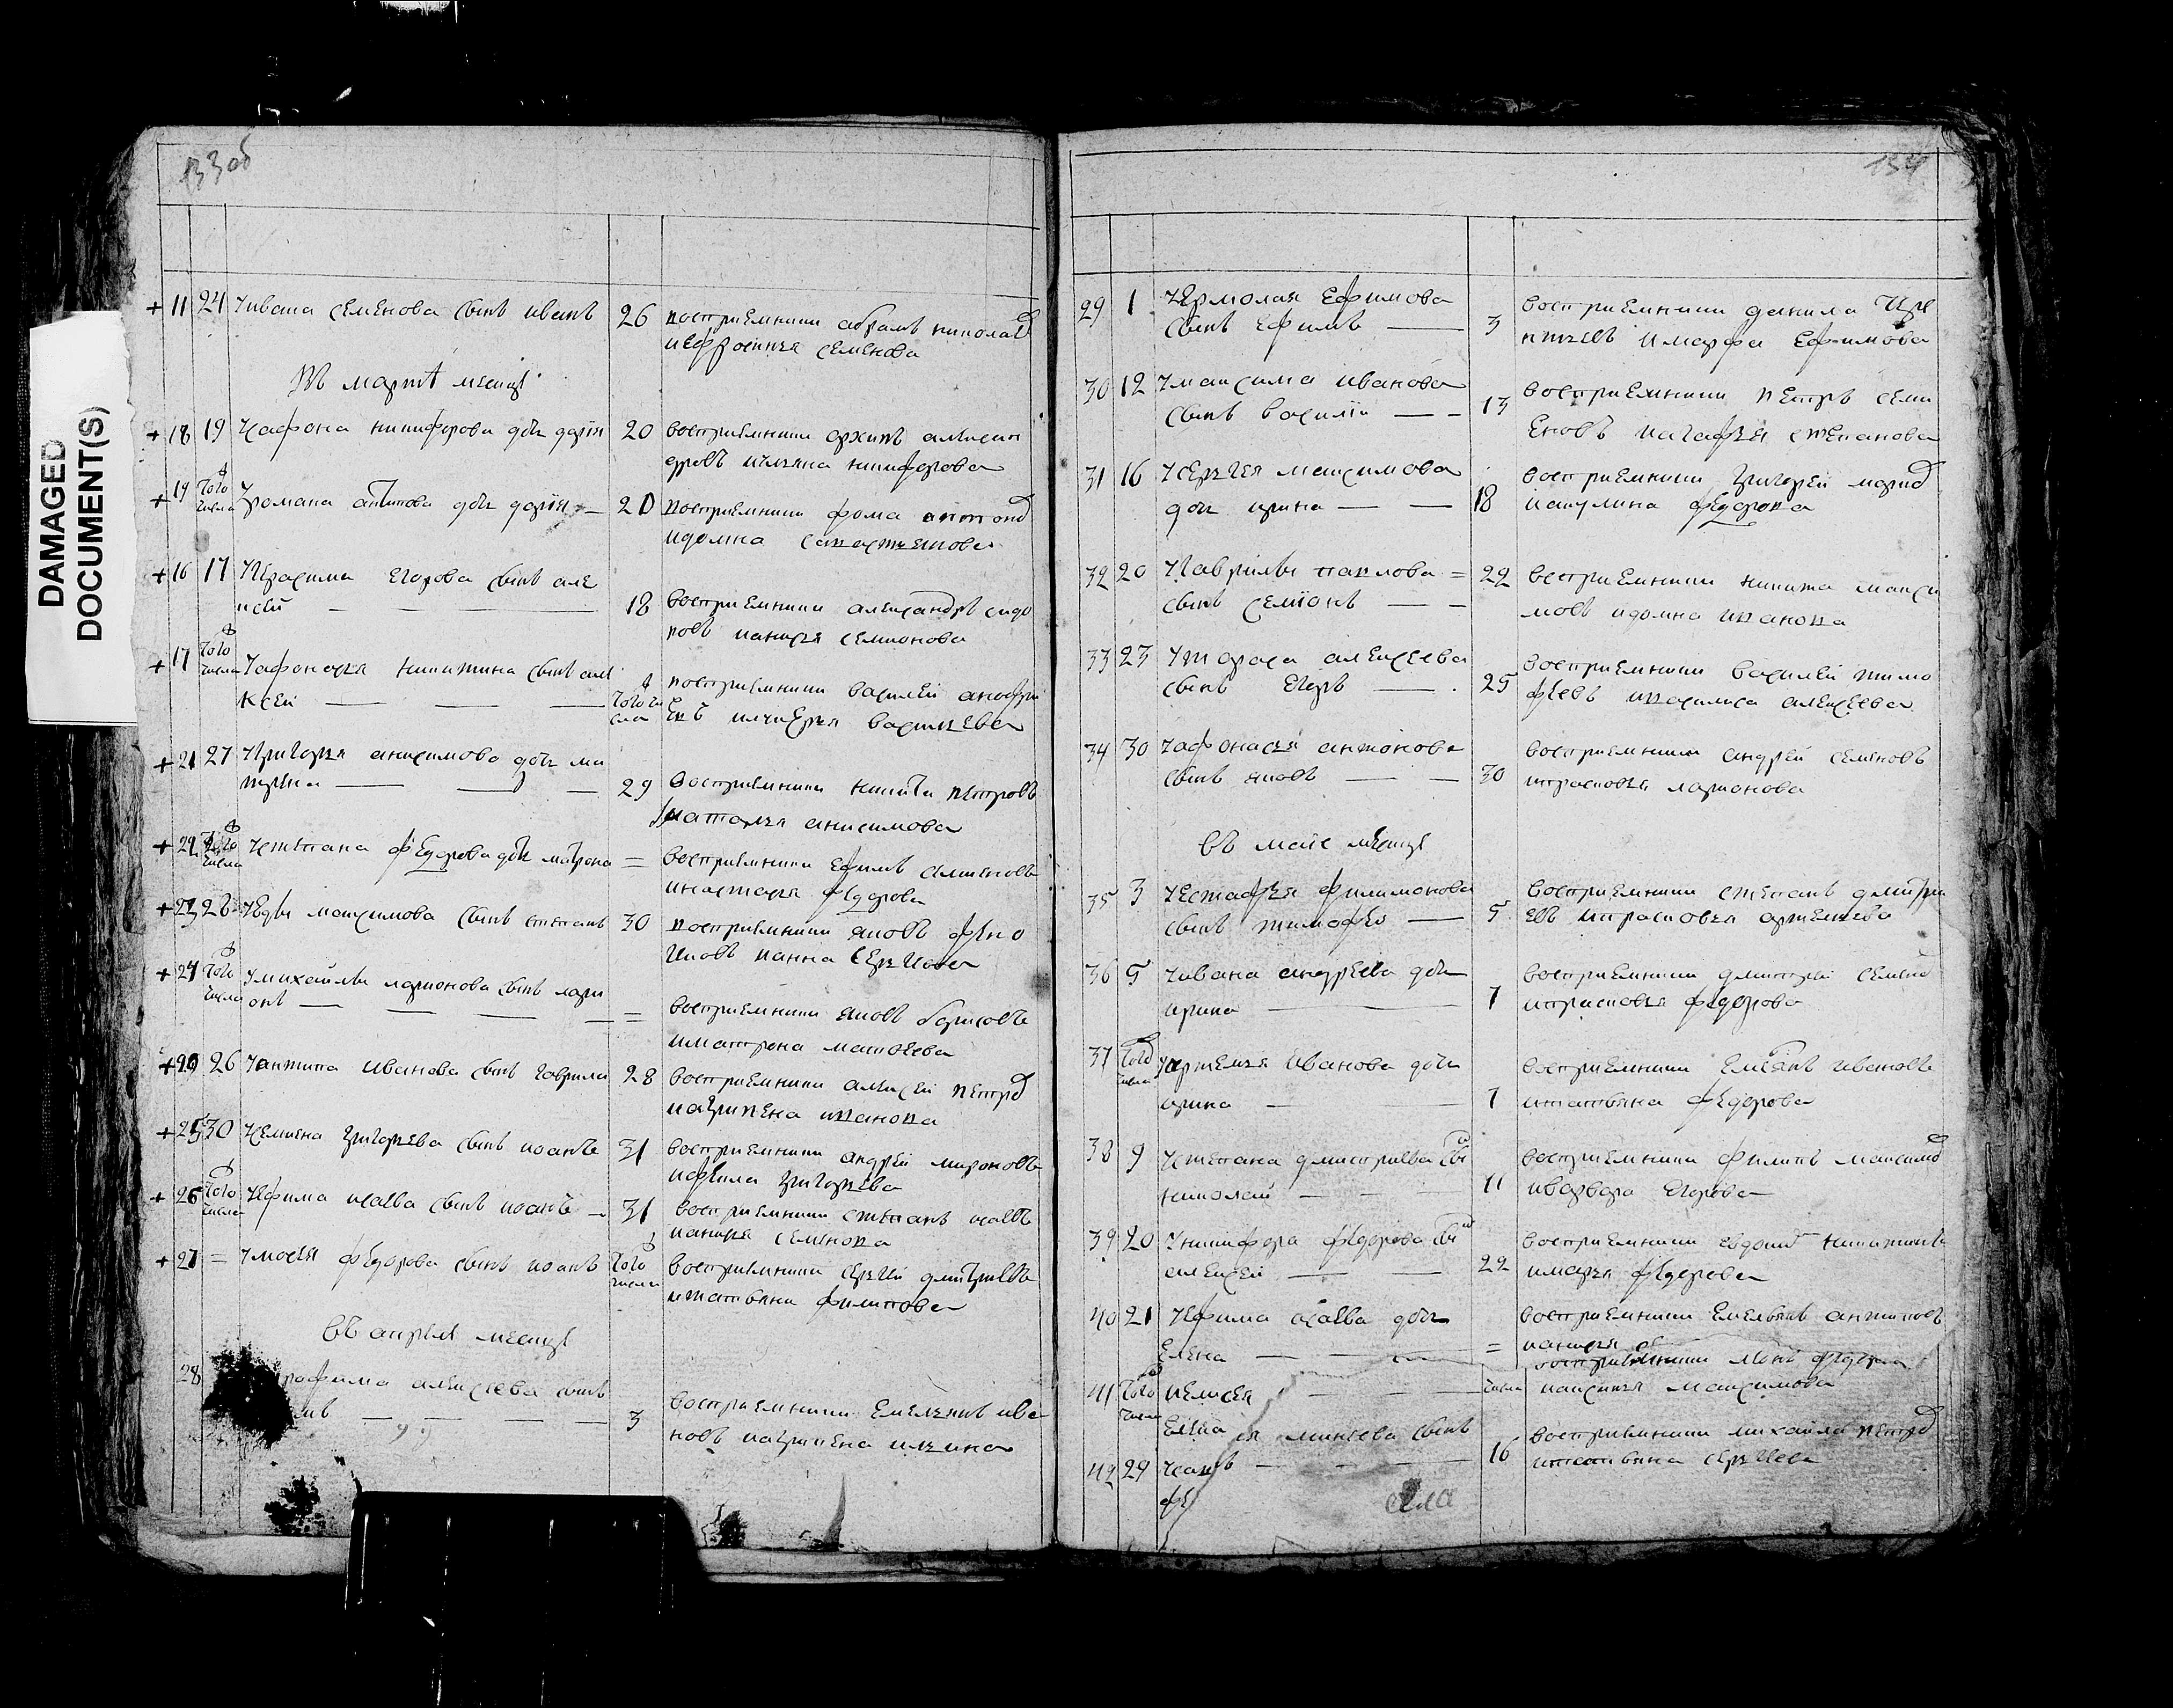 DAMAGED
DOCUMENT(S)
133 об
+ 11 24 У ивана семенова сынъ иванъ 26 восприемники абрамъ никола
и ефросинья семенова
Въ мартѣ месяцѣ
+ 18 19 У афона никифорова дочь дарїя 20 восприемники архипъ алексан
дровъ и ульяна никифорова
+ 19 того числа У романа антипова дочь дарїя 20 восприемники фома антонов
и домна
+ 16 17 У герасима егорова сынъ але
ксей 18 восприемники александръ сидо
ровъ и анисья семионова
+ 17 того числа У афонасья никитина сынъ але
ксей того чи
сла восприемники василей
евъ и лукерья васильева
+ 21 27 У григорья анисимова дочь ма
трена 29 восприемники никита петровъ
наталья анисимова
+ 22 того числа У степана федорова дочь матрона = восприемники ефимъ семеновъ
и настасья федорова
+ 23 28 максимова сынъ степанъ 30 восприемники яковъ
и анна сергиева
+ 24 того числа У михайлы ларионова сынъ лари
онъ = восприемники яковъ борисовъ
и матрона матвеева
+ 20 26 У антипа иванова сынъ гаврила 28 восприемники алексей петров
и агрипена иванова
+ 25 30 У семена григорьева сынъ иоанъ 31 восприемники андрей мироновъ
и афимa григорьева
+ 26 того числа У ефима исаева сынъ иоанъ 31 восприемники степанъ исаевъ
и анисья семенова
+ 27 = У мосея федорова сынъ иоанъ того числа восприемники сергей дмитриевъ
и татьяна филипова
Въ апреле месяцѣ
28 рофима алексеева сынъ
3 восприемники емельянъ ива
новъ и агрипена ильина
134
29 1 У ермолая ефимова
сынъ ефимъ 3 восприемники данила
и марфа ефимова
30 12 У максима иванова
сынъ василїи 13 восприемники петръ семи
еновъ и агафья степанова
31 16 У сергея максимова
дочь ирина 18 восприемники григорей марков
и акулина федорова
32 20 У гаврилы павлова =
сынъ семїонъ 22 восприемники никита макси
мовъ и домна иванова
33 23 У тараса алексеева
сынъ егоръ 25 восприемники василей тимо
феевъ и василиса алексеева
34 30 У афонасья антонова
сынъ яковъ 30 восприемники андрей семеновъ
и прасковья ларионова
въ маїе месяцѣ
35 3 У естафья филимонова
сынъ тимофеи 5 восприемники степанъ дмитри
евъ и прасковья артемьева
36 5 У ивана андреева дочь
ирина 7 восприемники дмитрей семенов
и прасковья федорова
37 того числа У артемья иванова дочь
ирина 7 восприемники емельянъ ивановъ
и татьяна федорова
38 9 У степана дмитриева сын
николай 11 восприемники филипъ максимов
и варвара егорова
39 20 У никифора федорова сын
алексей 22 восприемники евдокимъ никитинъ
и марья федорова
40 21 У ефима исаева дочь
елена = восприемники емельянъ антиповъ
и анисья
41 того числа У елисея
елена числа восприемники
и аксинья максимова
42 29 минеева сынъ
16 восприемники михаила петров
и татьяна сергиева